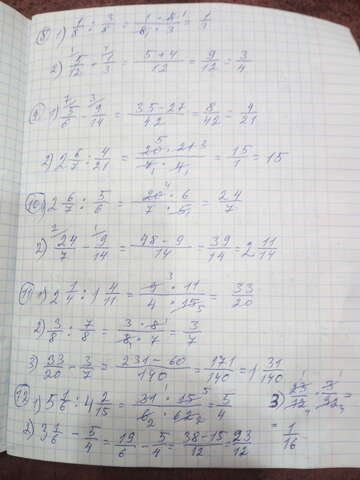 8) 1) 1/8 : 3/8 = 1 · 8/8 · 3 = 1/3
2) 5/12 + 1/3 = 5 + 4/12 = 9/12 = 3/4
9) 1) 5/6 - 9/14 = 35 - 27/42 = 8/42 = 4/21
2) 2 6/7 : 4/21 = 20 · 21/7 · 4 = 15/1 = 15
10) 1) 2 6/7 : 5/6 = 20 · 6/7 · 5 = 24/7
2) 24/7 - 9/14 = 48 - 9/14 = 39/14 = 2 11/14
11) 1) 2 1/4 : 1 4/11 = 9 · 11/4 · 15 = 33/20
2) 3/8 : 7/8 = 3 · 8/8 · 7 = 3/7
3) 33/20 - 3/7 = 231 - 60/140 = 171/140 = 1 31/140
12) 1) 5 1/6 : 4 2/15 = 31 · 15/6 · 62 = 5/4
2) 3 1/6 - 5/4 = 19/6 - 5/4 = 38 - 15/12 = 23/12
= 1/16